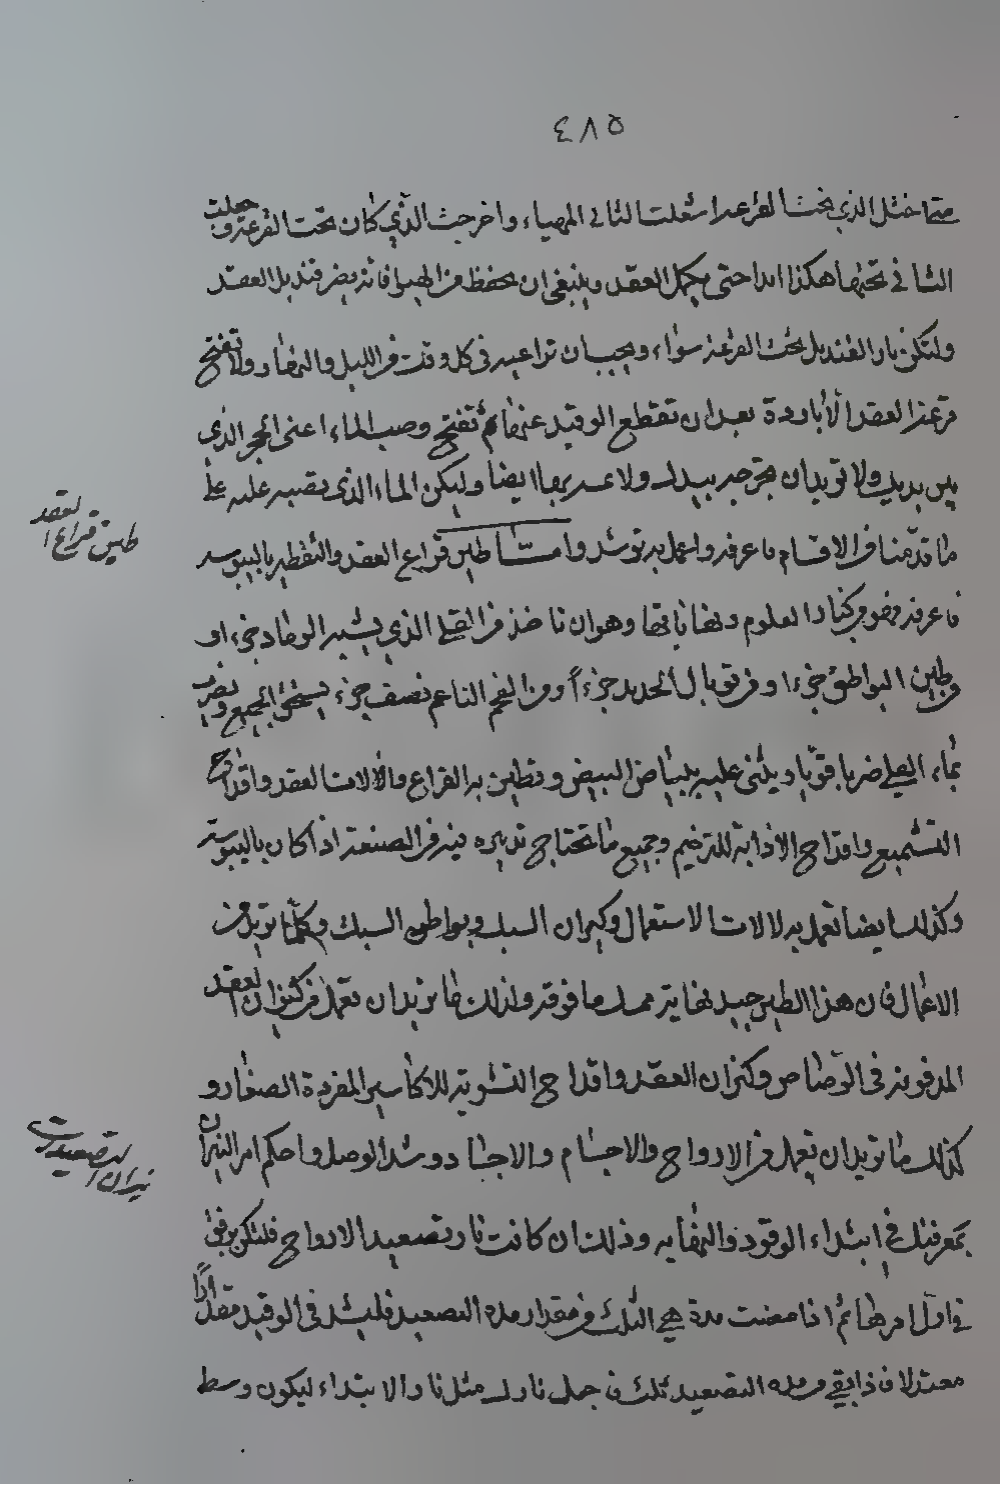 ٤٨٥
متى اختل الذي تحت القرعة اشعلت الثاني المهياء واخرجت الذي كان تحت القرعة وجعلت
الثاني تحتها هكذا ابدا حتى يكمل العقد وينبغي ان تحفظ من الهوا فانه يضر قنديل العقد
ولتكن نار القنديل تحت القرعة سواء ويجب ان تراعيه في كل وقت من الليل والنهار ولا تفتح
قرعة العقد الا باردة بعد ان تقطع الوقيد عنها ثم تفتح وصب الماء اعني الحجر الذي
بين يديك ولا تريد ان تخرجه بيدك ولا ايضا وليكن الماء الذي تصبه عليه على
ما قدمنا من الاقسام فاعرفه واعمل به ترشد واما طين قراع العقد والتقطير باليبوسه
فاعرفه فهو من كنار العلوم ونهاياتها وهو ان تاخذ من القلى الذي يشبه الرماد جزء او
من طين البواطق جزءا ومن توبال الحديد جزءاً ومن الفحم الناعم نصف جزء يسحق الجميع ويضرب
بماء القلى ضربا قويا ويثنى عليه ببياض البيض وتطين به القراع والالات العقد واقداح
التشميع واقداح الاذابة للترخيم وجميع ما تحتاج تدبيره فيه من الصنعة اذا كان باليبوسه
وكذلك ايضا تعمل به لالات الاستعمال وكيزان السبك وبواطق السبك وكلما تريد من
الاعمال فان هذا الطين جيد لغاية عمل ما فوقه ولذلك ما تريد ان تعمل من كيزان العقد
المدفونة في الرصاص وكيزان العقد واقداح التشوية للاكاسير المفردة الصغار و
كذلك ما تريد ان تعمل من الارواح والاجسام والاجساد وشد الوصل واحكم امر النيران
بمعرفتك في ابتداء الوقود والنهايه وذلك ان كانت نار تصعيد الارواح فلتكن برفق
في اول امرها ثم اذا مضت مدة هي الثلث من مقدار مدة التصعيد فليشد في الوقيد مقداراً
معتدلا فاذا بقي من مدة التصعيد ثلث فاجعل نارك مثل نار الابتداء ليكون وسط
طين قراع العقد
نيران التصعيدات